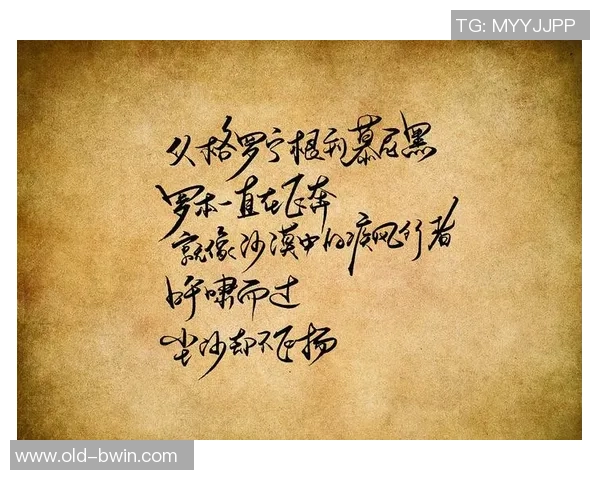 TG: MYYJJPP
从格罗宁根到慕尼黑
罗本一直在飞奔
就像沙漠中的疾风行者
呼啸而过
尘沙却不飞扬
www.old-bwin.com